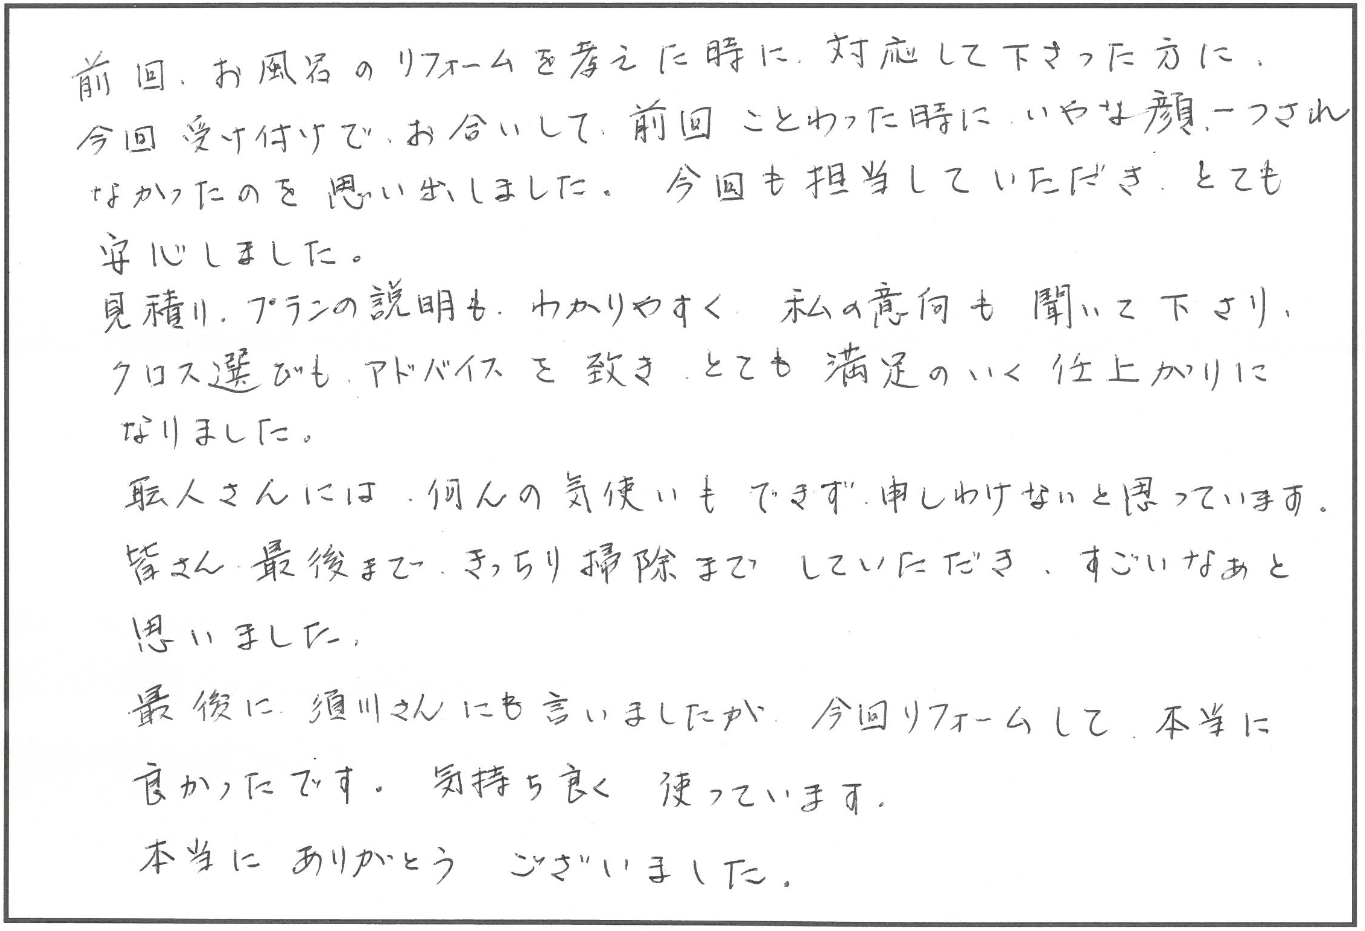 前回、お風呂のリフォームを考えた時に、対応して下さった方に、
今回受け付けで、お合いして、前回ことわった時に、いやな顔、一つされ
なかったのを思い出しました。今回も担当していただき、とても
安心しました。
見積り、プランの説明も、わかりやすく、私の意向も聞いて下さり、
クロス選びも、アドバイスを致き、とても満足のいく仕上がりに
なりました。
転人さんには、何んの気使いもできず、申しわけないと思っています。
皆さん、最後まで、きっちり掃除までしていただき、すごいなぁと
思いました。
最後に、須川さんにも言いましたが、今回リフォームして、本当に
良かったです。気持ち良く使っています。
本当にありがとうございました。